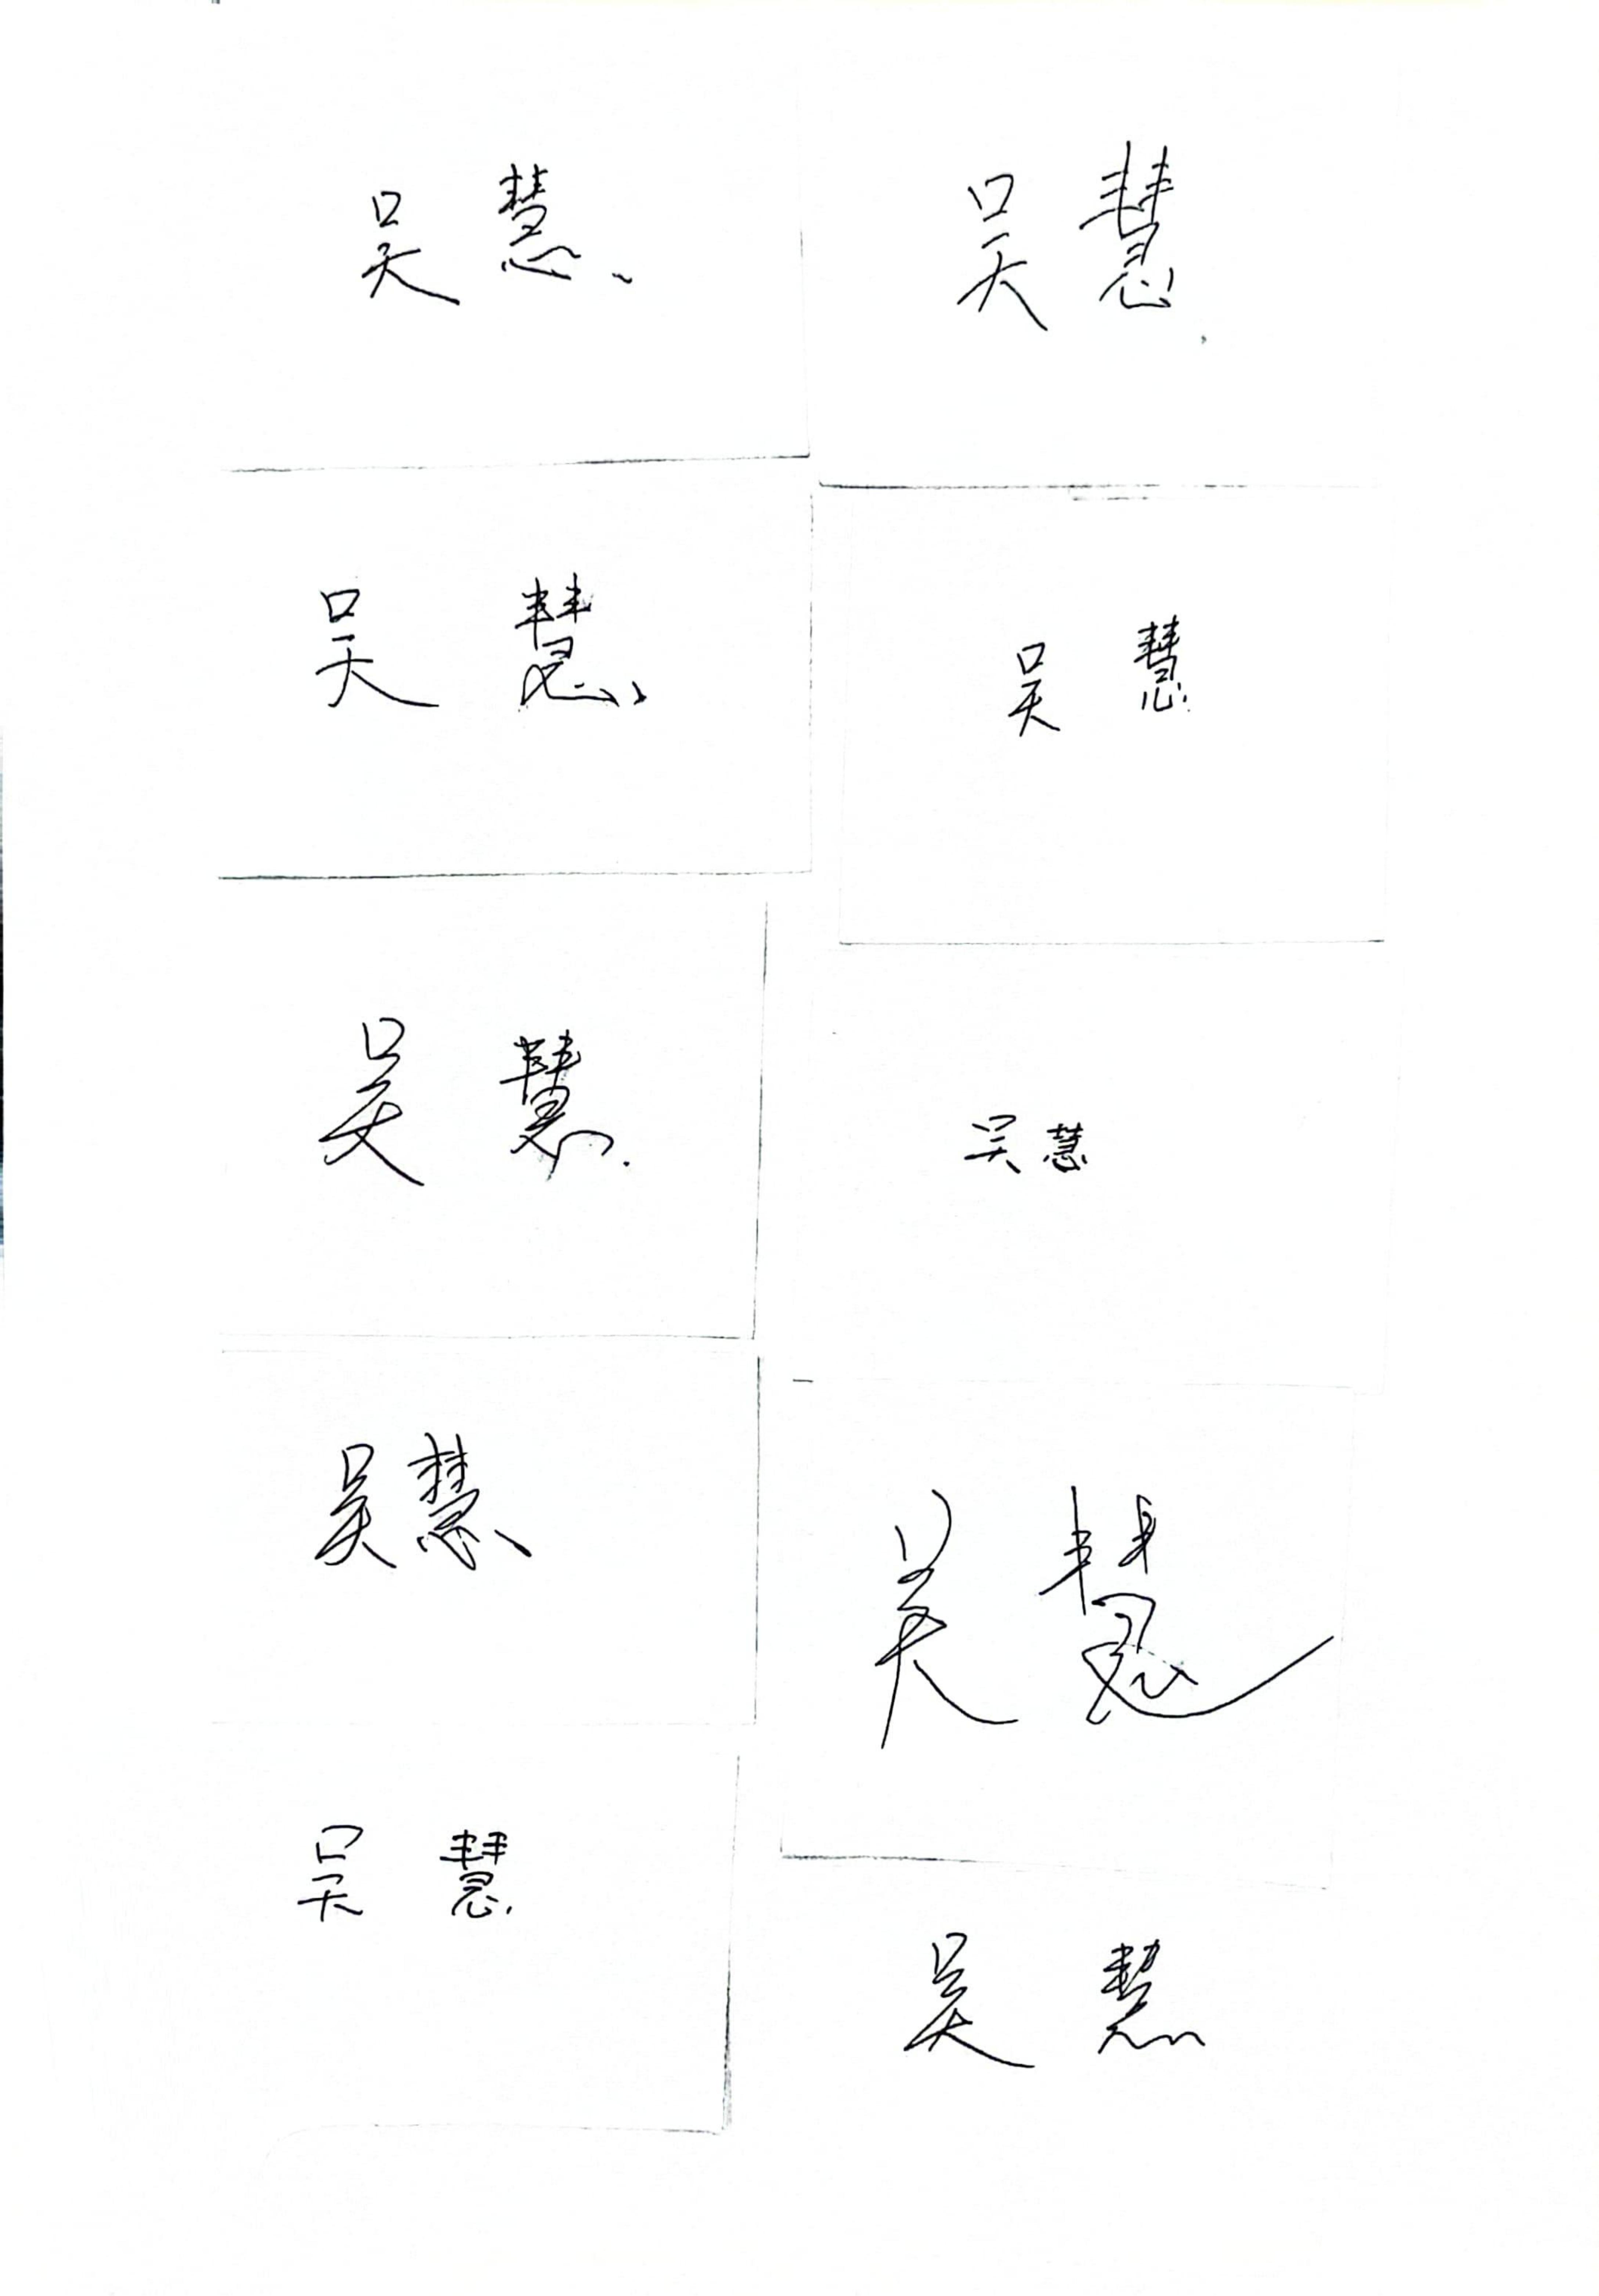 吴慧
吴慧
吴慧
吴慧
吴慧
吴慧
吴慧
吴慧
吴慧
吴慧